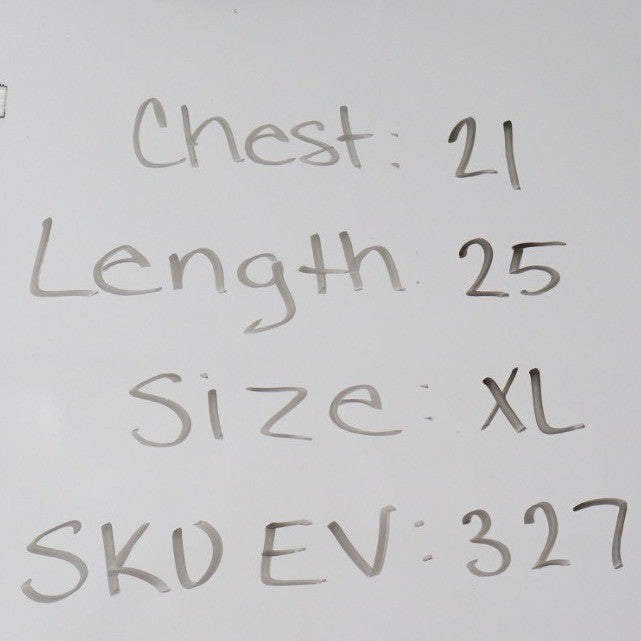 Chest: 21
Length: 25
Size: XL
SKU EV: 327